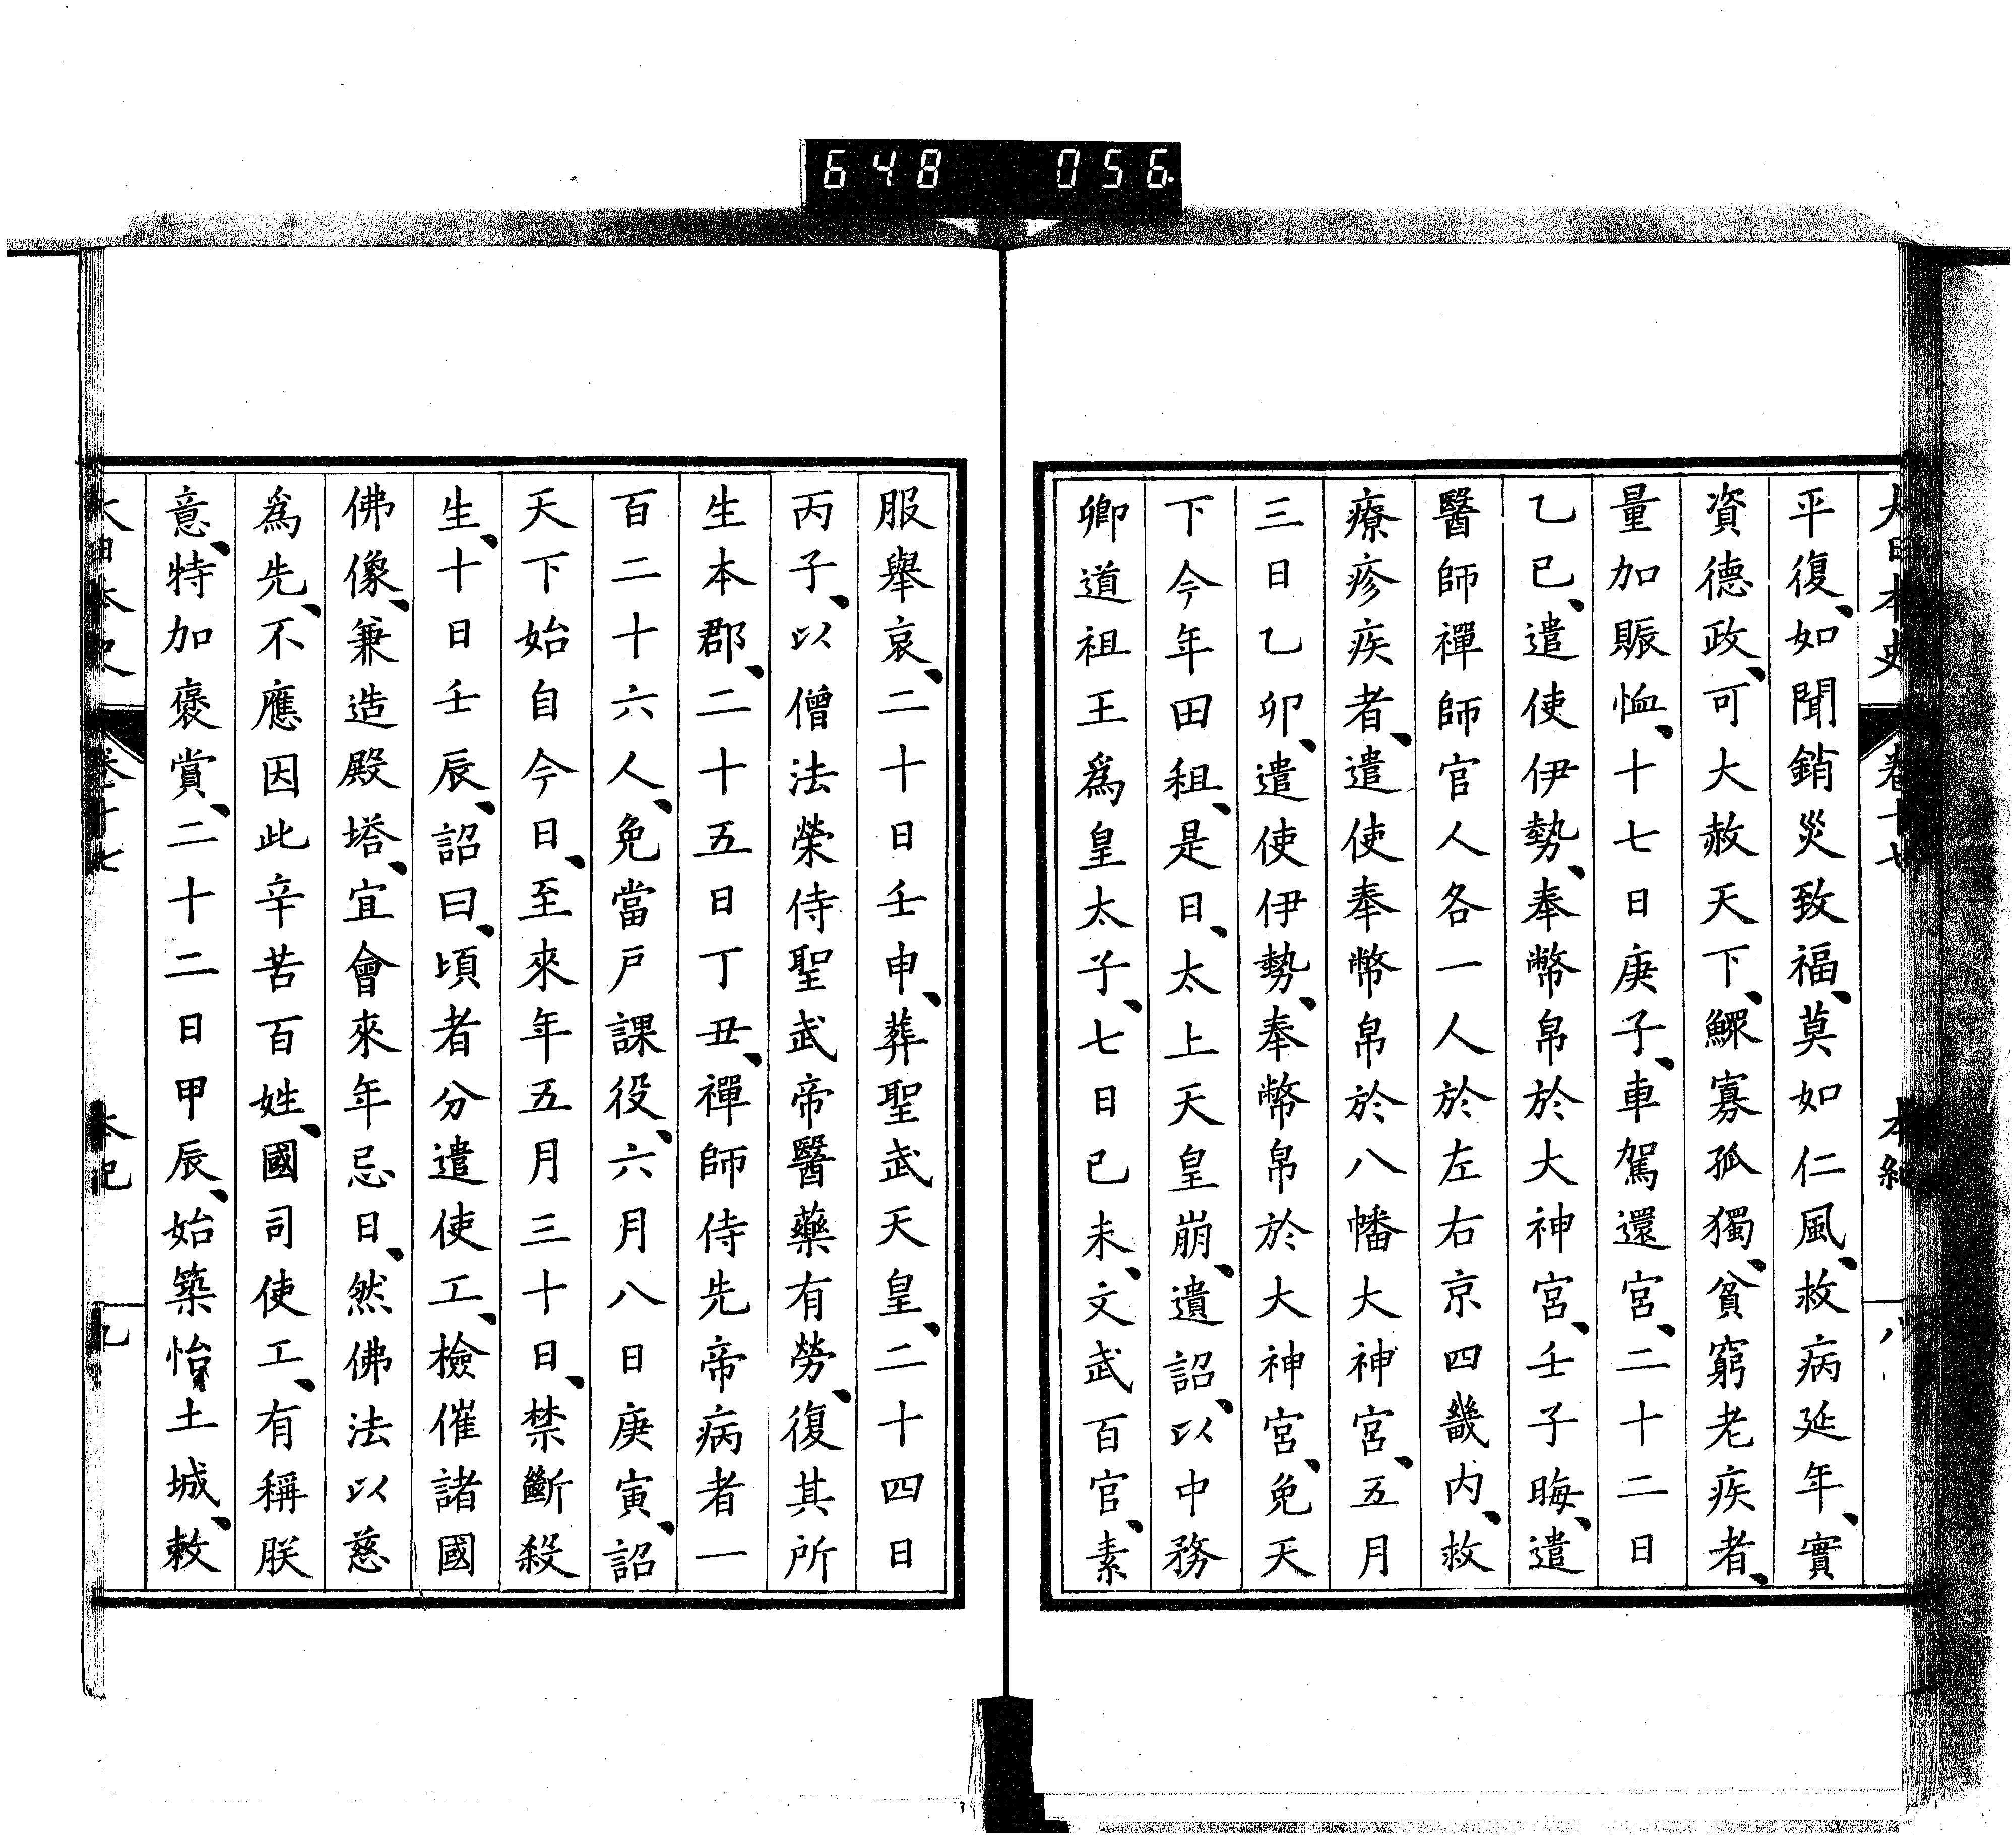 648 056
大日本史 卷十七 本紀 八
平復、如聞銷災致福、莫如仁風、救病延年、實
資德政、可大赦天下、鰥寡孤獨、貧窮老疾者、
量加賑恤、十七日庚子、車駕還宮、二十二日
乙巳、遣使伊勢、奉幣帛於大神宮、壬子晦、遣
醫師禪師官人各一人於左右京四畿内、救
療疹疾者、遣使奉幣帛於八幡大神宮、五月
三日乙卯、遣使伊勢、奉幣帛於大神宮、免天
下今年田租、是日、太上天皇崩、遺詔、以中務
卿道祖王爲皇太子、七日己未、文武百官、素
服舉哀、二十日壬申、葬聖武天皇、二十四日
丙子、以僧法榮侍聖武帝醫藥有勞、復其所
生本郡、二十五日丁丑、禪師侍先帝病者一
百二十六人、免當戸課役、六月八日庚寅、詔
天下始自今日、至來年五月三十日、禁斷殺
生、十日壬辰、詔曰、頃者分遣使工、檢催諸國
佛像、兼造殿塔、宜會來年忌日、然佛法以慈
爲先、不應因此辛苦百姓、國司使工、有稱朕
意、特加褒賞、二十二日甲辰、始築怡土城、敕
大日本史 卷十七 本紀